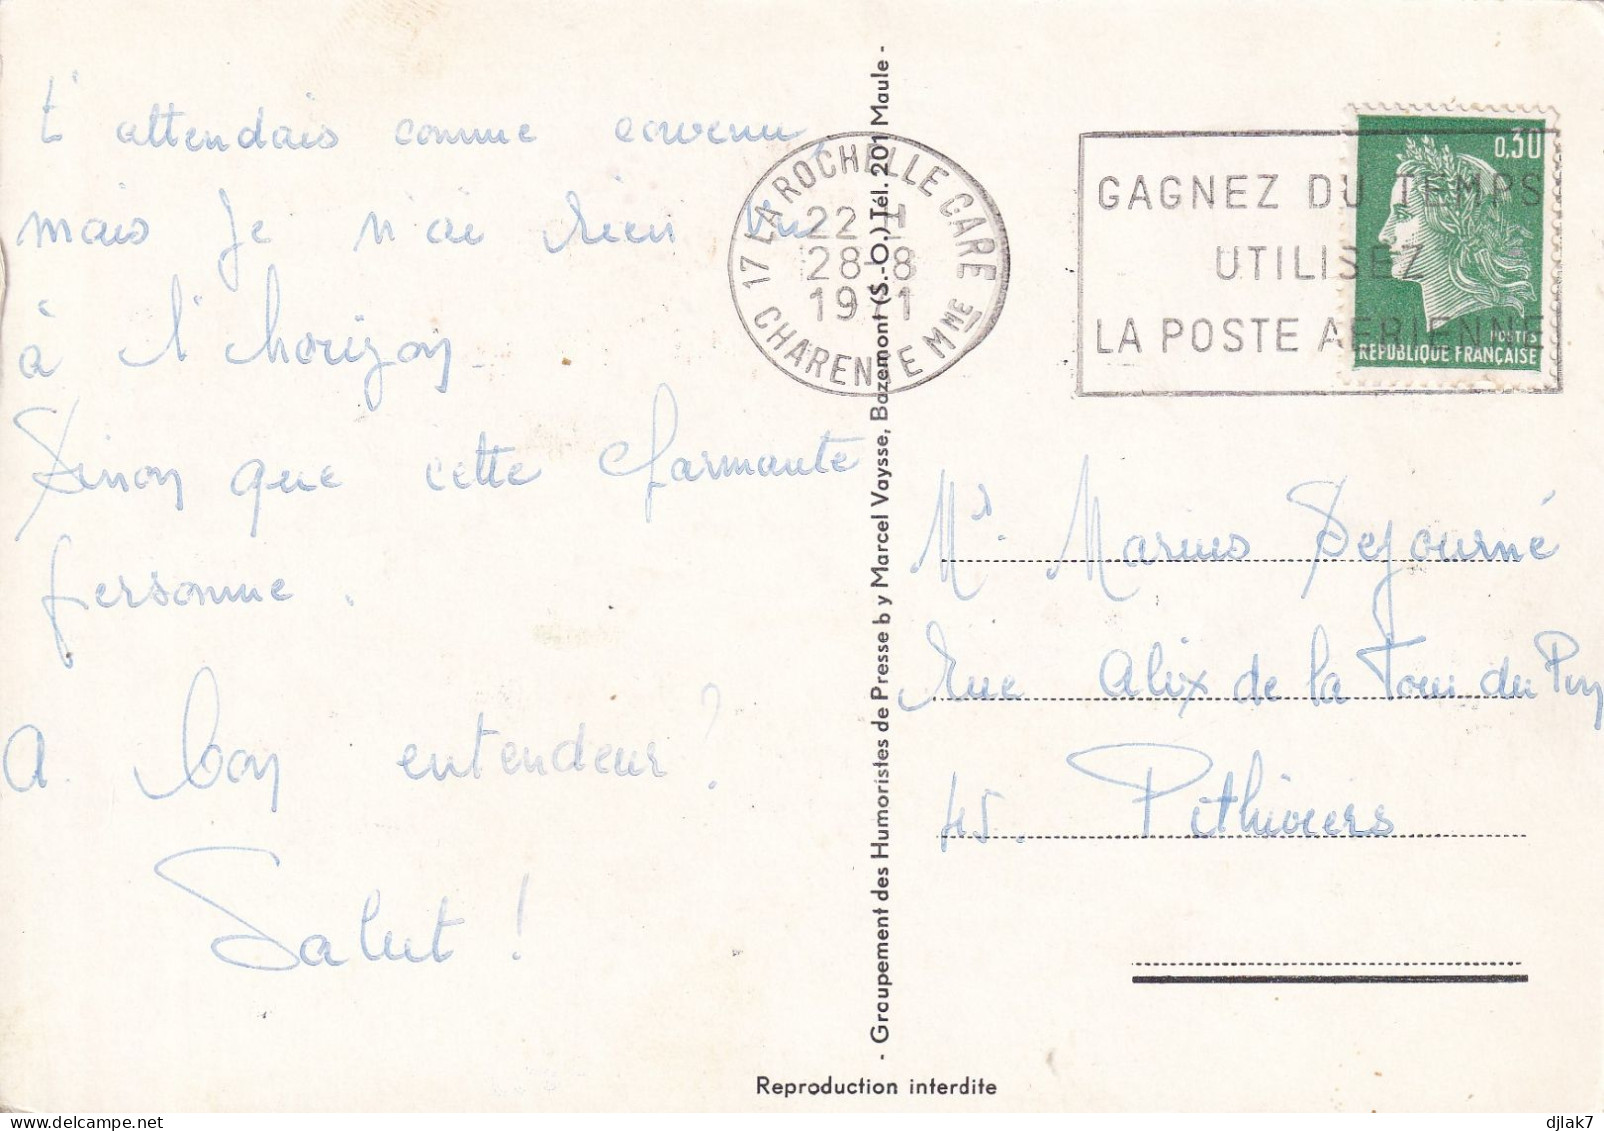 t'attendais comme convenu,
mais je n'ai rien vu
à l'horizon.
Sinon que cette charmante
personne.
A bon entendeur ?
Salut !
17 LA ROCHELLE GARE
22 H
28-8
1971
CHARENTE MME
GAGNEZ DU TEMPS
UTILISEZ
LA POSTE AERIENNE
0,30
POSTES
REPUBLIQUE FRANÇAISE
- Groupement des Humoristes de Presse b y Marcel Vaysse, Bazemont (S.-O.) Tél. 201 Maule -
Mr. Marius Sejourné
rue Alix de la Tour du Puy
45. Pithiviers
Reproduction interdite
djlak7